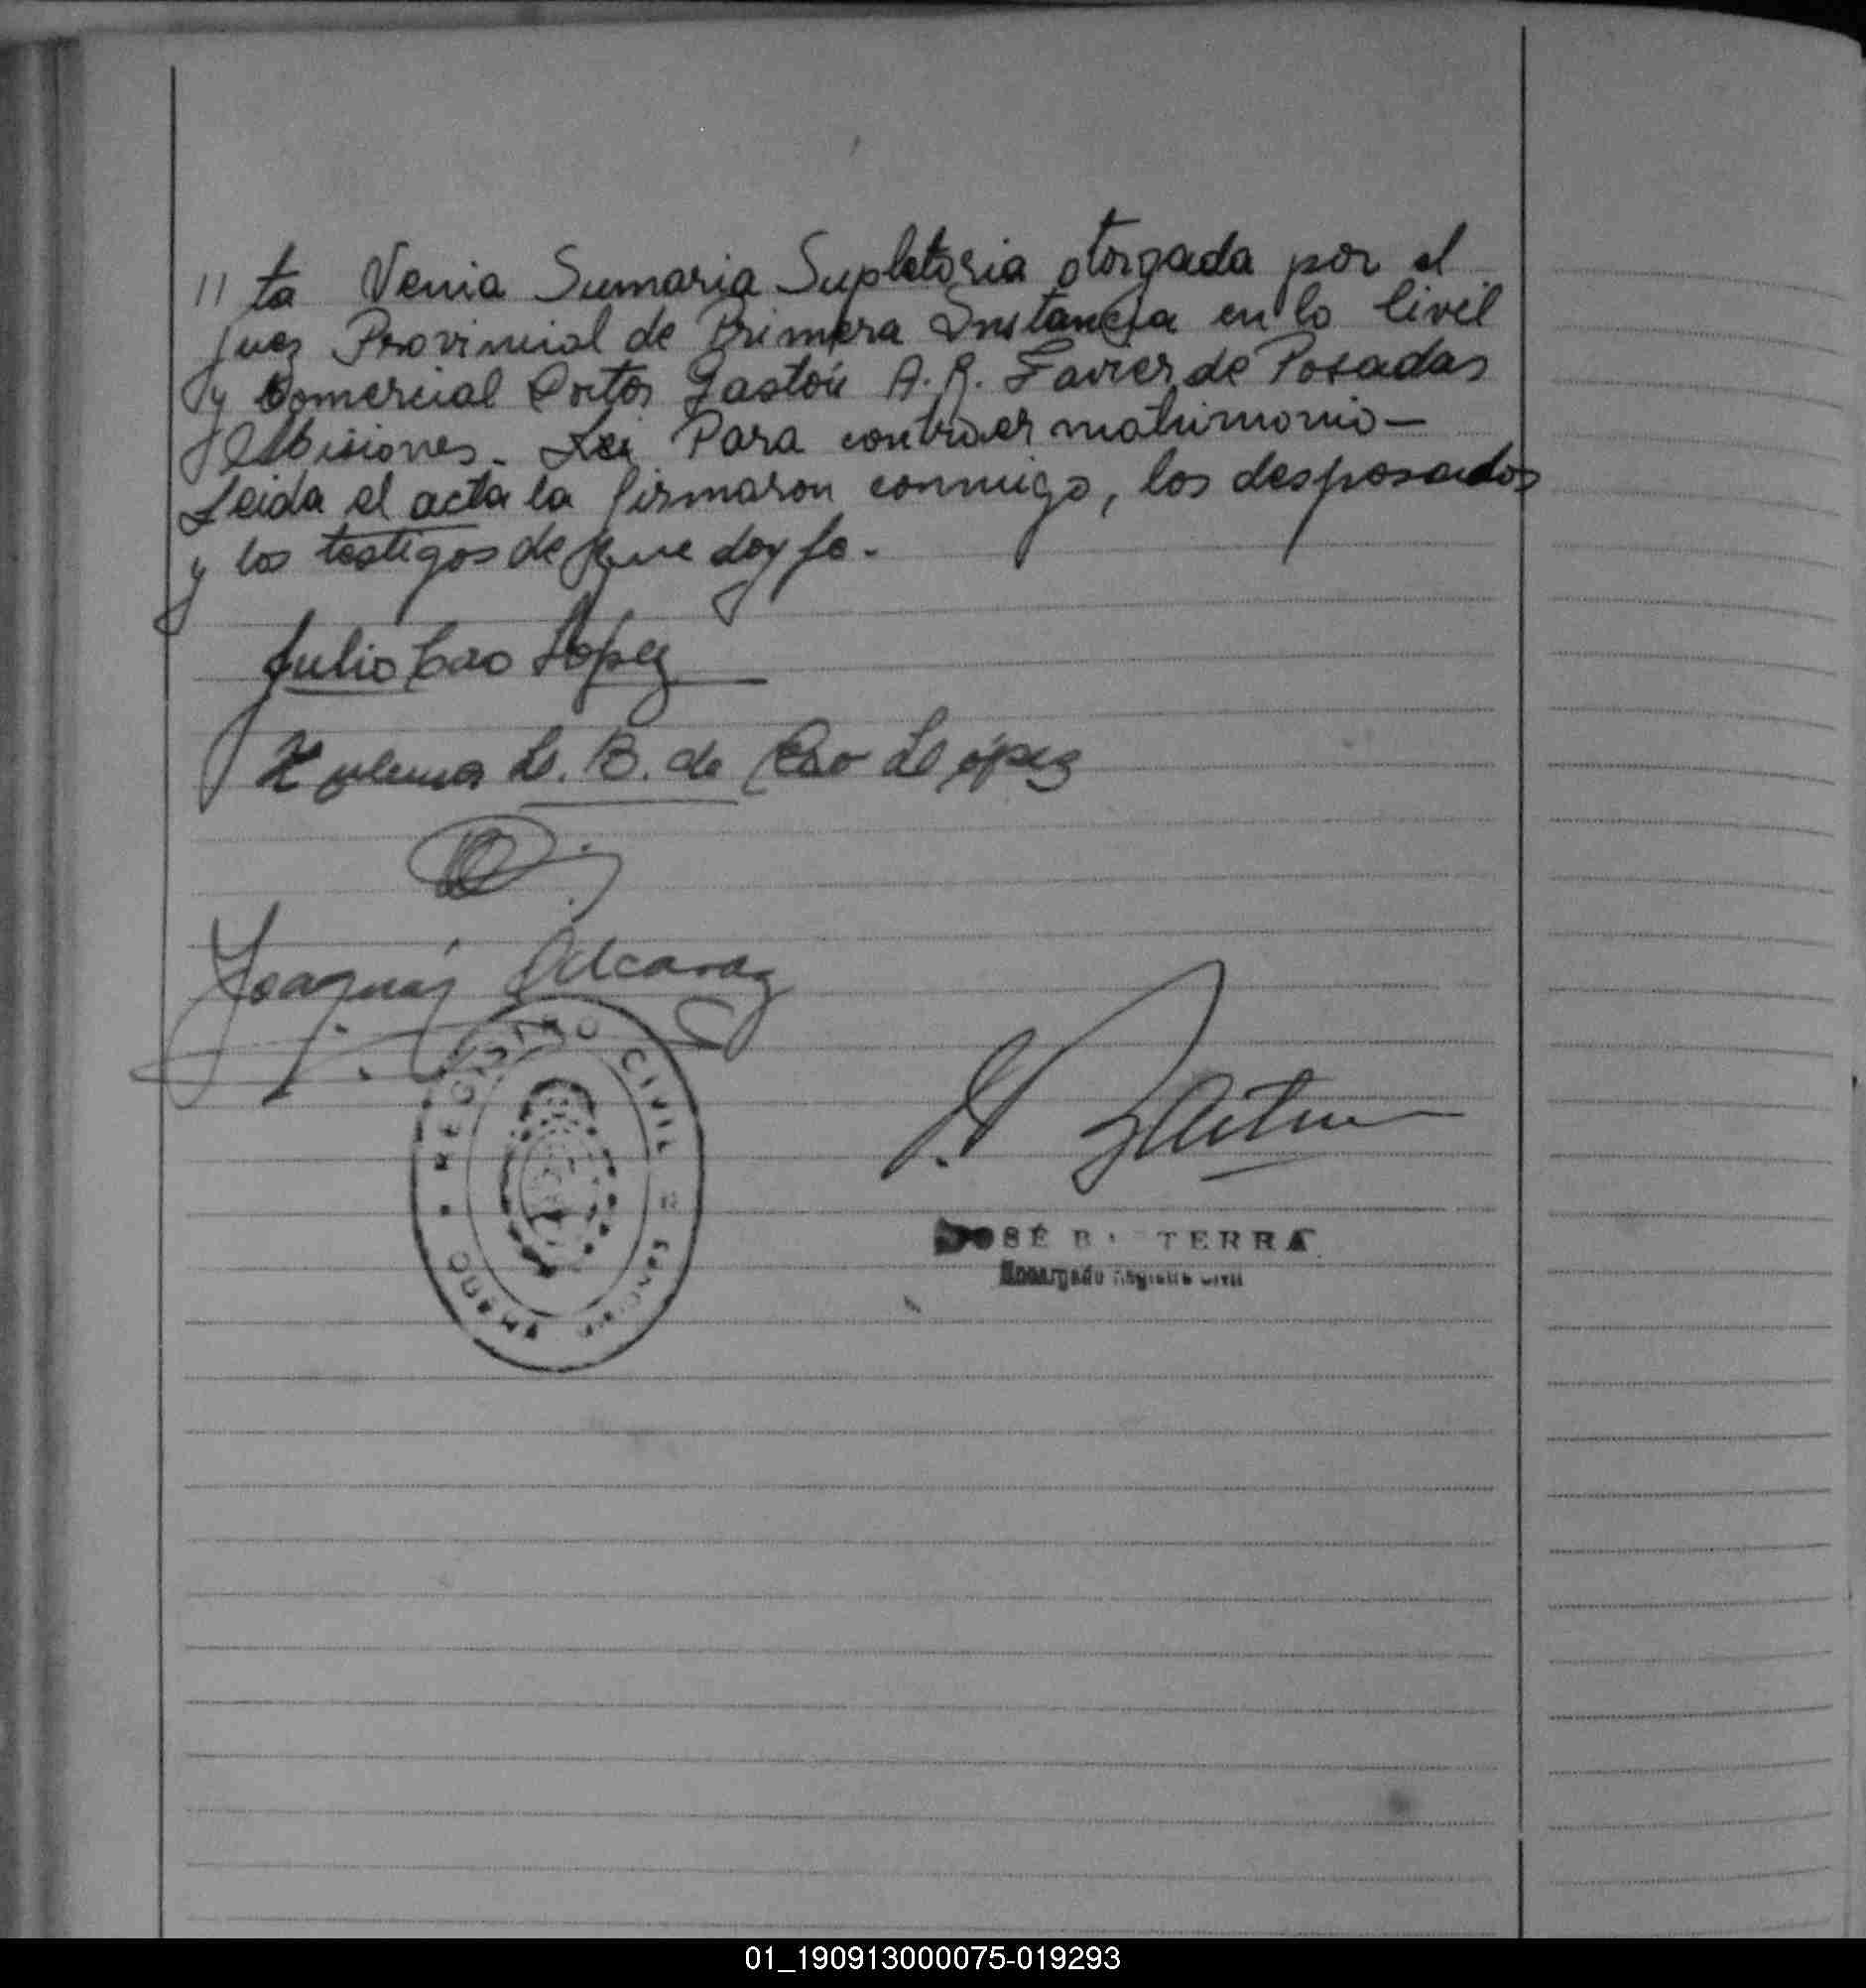 // ta Venia Sumaria Supletoria otorgada por el
Juez Provincial de Primera Instancia en lo Civil
y Comercial Doctor Gastón A. R. Favier, de Posadas
Misiones. Para contraer matrimonio—
Leida el acta la firmaron conmigo, los desposados
y los testigos de que doy fe.-
Julio Cao López
Zulema L. B. de Cao López
Joaquín Alcaraz
REGISTRO CIVIL
JOSÉ B. TERRA
Encargado Registro Civil
01_190913000075-019293